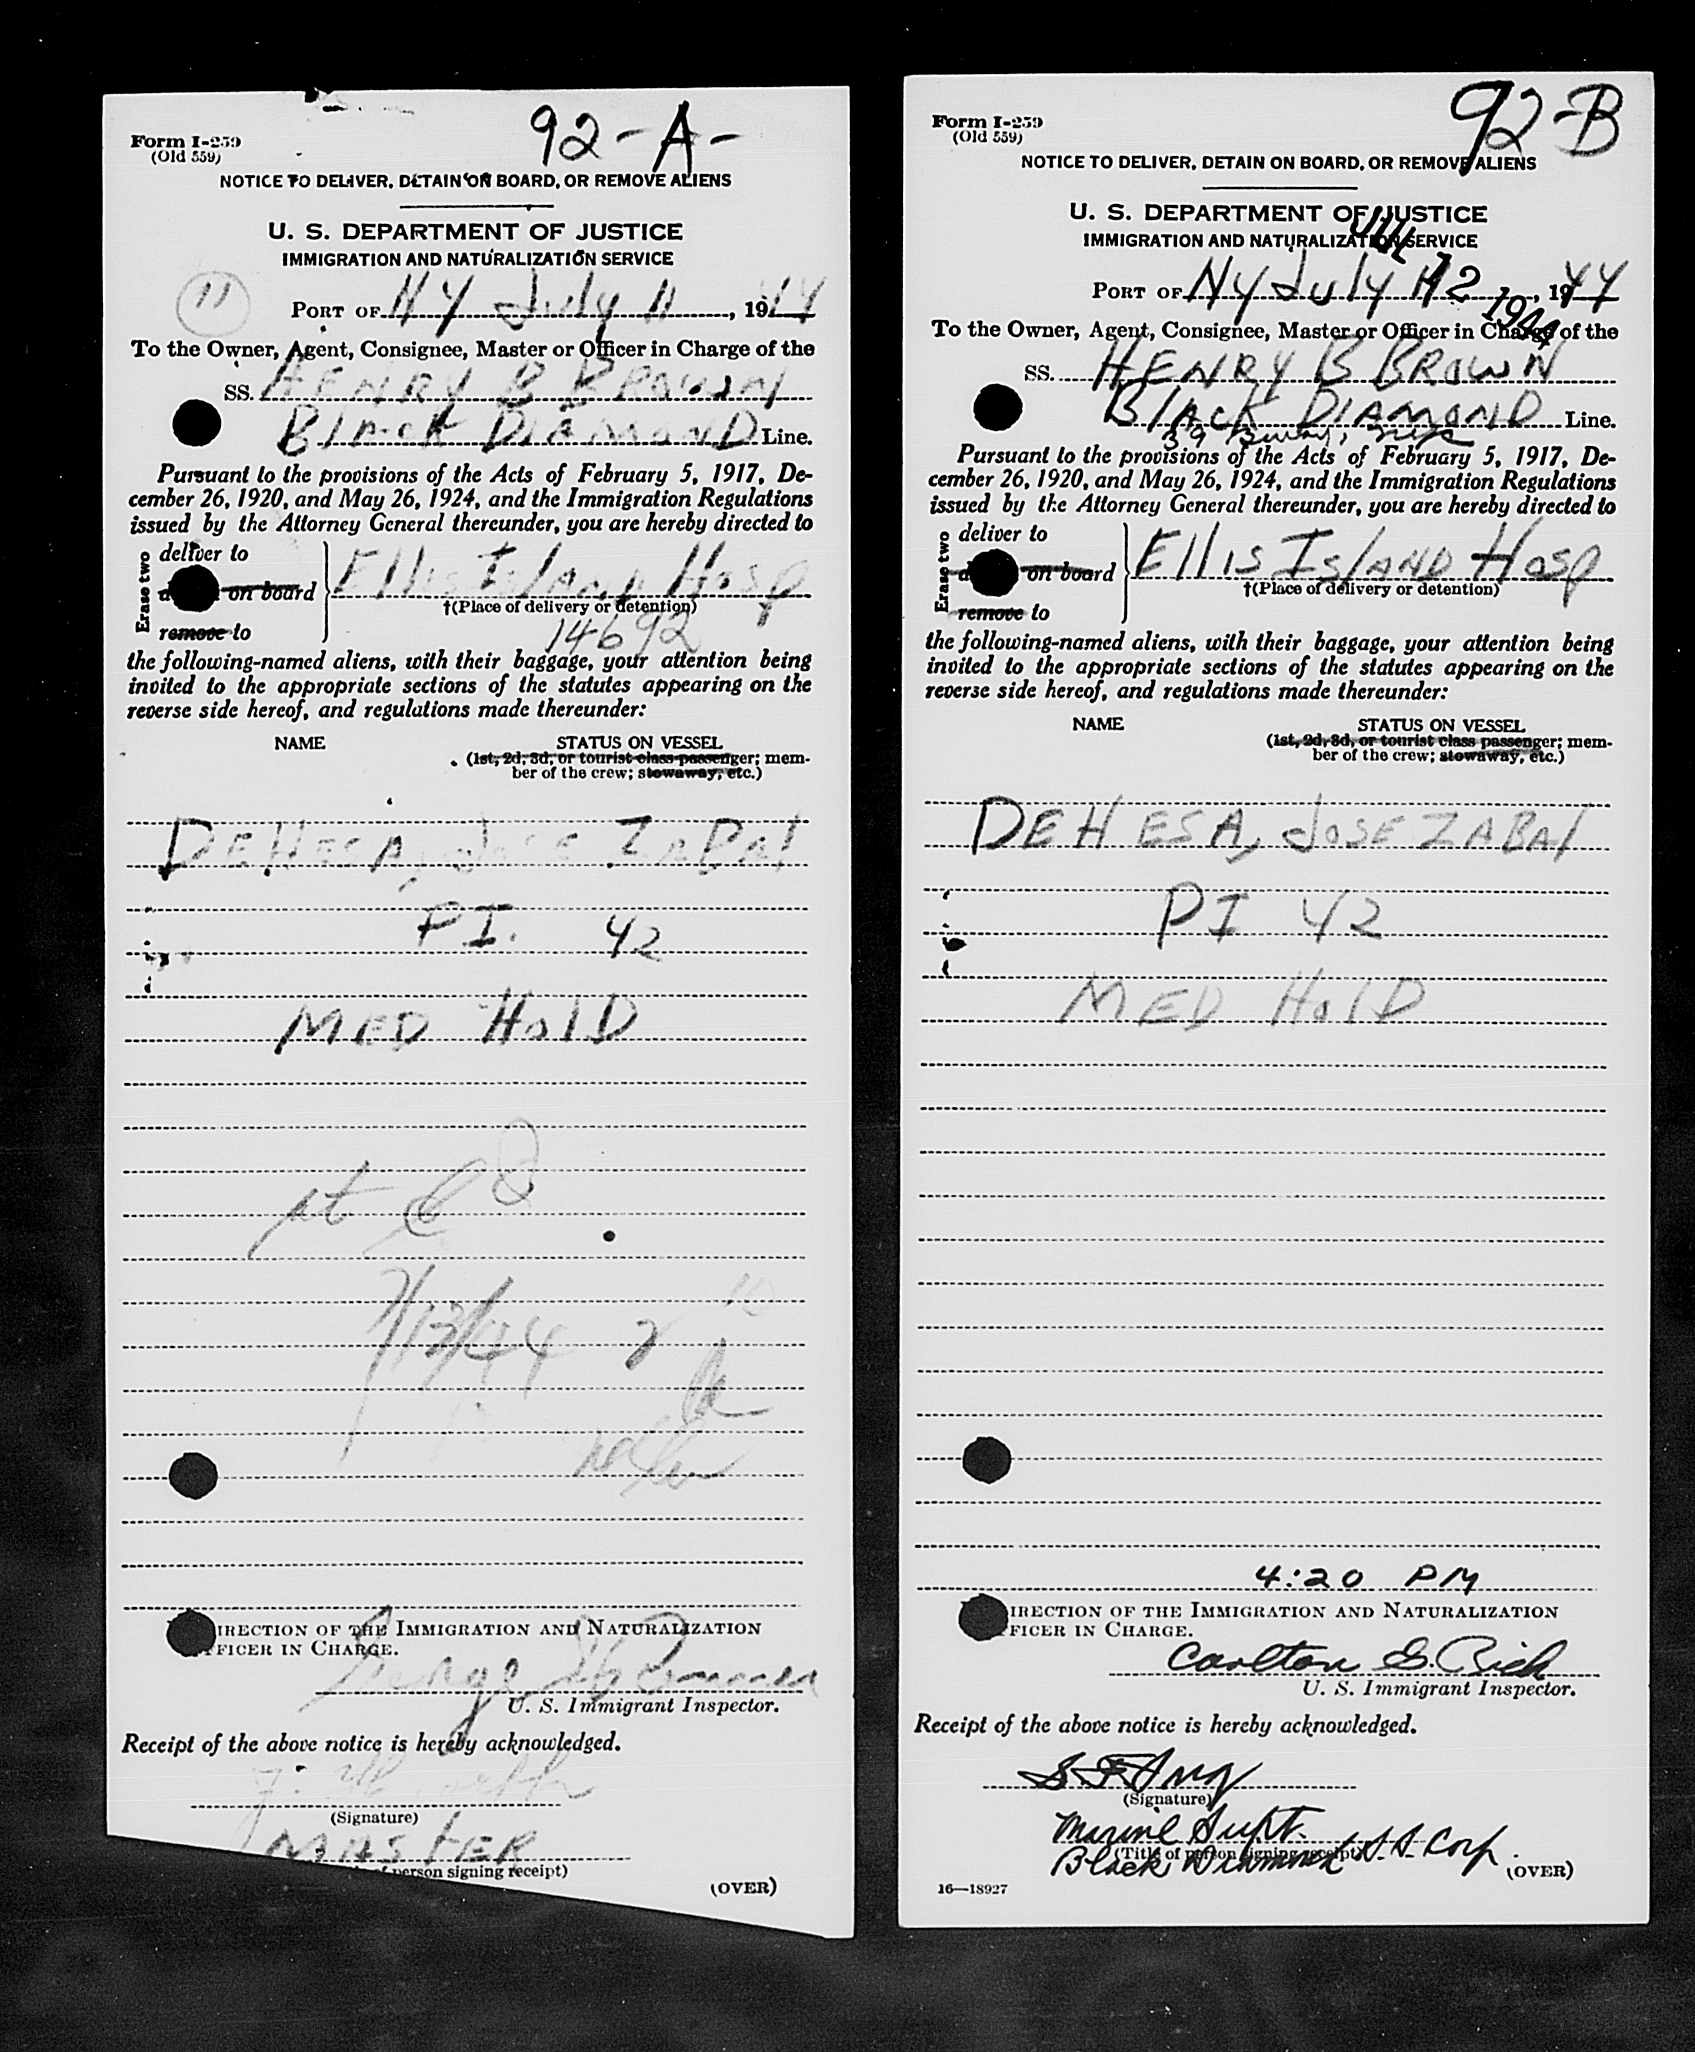 92-A-
Form I-259
(Old 559)
NOTICE TO DELIVER, DETAIN ON BOARD, OR REMOVE ALIENS
U. S. DEPARTMENT OF JUSTICE
IMMIGRATION AND NATURALIZATION SERVICE
11
PORT OF NY July 11, 1944
To the Owner, Agent, Consignee, Master or Officer in Charge of the
SS. HENRY B BROWN
BlACK DIAMOND Line.
Pursuant to the provisions of the Acts of February 5, 1917, De-
cember 26, 1920, and May 26, 1924, and the Immigration Regulations
issued by the Attorney General thereunder, you are hereby directed to
Erase two
deliver to
on board
remove to
EllIS IslAND Hosp
†(Place of delivery or detention)
14692
the following-named aliens, with their baggage, your attention being
invited to the appropriate sections of the statutes appearing on the
reverse side hereof, and regulations made thereunder:
NAME STATUS ON VESSEL
(1st, 2d, 3d, or tourist class passenger; mem-
ber of the crew; stowaway, etc.)
DEHESA, JOSE ZABAl
PI. 42
MED HOlD
7/13/44
IRECTION OF THE IMMIGRATION AND NATURALIZATION
FICER IN CHARGE.
George
U. S. Immigrant Inspector.
Receipt of the above notice is hereby acknowledged.
(Signature)
MASTER
person signing receipt)
(OVER)
92-B
Form I-259
(Old 559)
NOTICE TO DELIVER, DETAIN ON BOARD, OR REMOVE ALIENS
U. S. DEPARTMENT OF JUSTICE
IMMIGRATION AND NATURALIZATION SERVICE
JUL 12 1944
PORT OF NY July 12, 1944
To the Owner, Agent, Consignee, Master or Officer in Charge of the
SS. HENRY B BROWN
BlACK DIAMOND Line.
39 Bway, NYC
Pursuant to the provisions of the Acts of February 5, 1917, De-
cember 26, 1920, and May 26, 1924, and the Immigration Regulations
issued by the Attorney General thereunder, you are hereby directed to
Erase two
deliver to
on board
remove to
EllIS IslAND Hosp
†(Place of delivery or detention)
the following-named aliens, with their baggage, your attention being
invited to the appropriate sections of the statutes appearing on the
reverse side hereof, and regulations made thereunder:
NAME STATUS ON VESSEL
(1st, 2d, 3d, or tourist class passenger; mem-
ber of the crew; stowaway, etc.)
DEHESA, JOSE ZABAl
PI 42
MED HOlD
4:20 PM
IRECTION OF THE IMMIGRATION AND NATURALIZATION
FICER IN CHARGE.
Carlton G Rich
U. S. Immigrant Inspector.
Receipt of the above notice is hereby acknowledged.
(Signature)
Marine Supt.
(Title of person signing receipt)
Black Diamond S.S. Corp.
(OVER)
16—18927